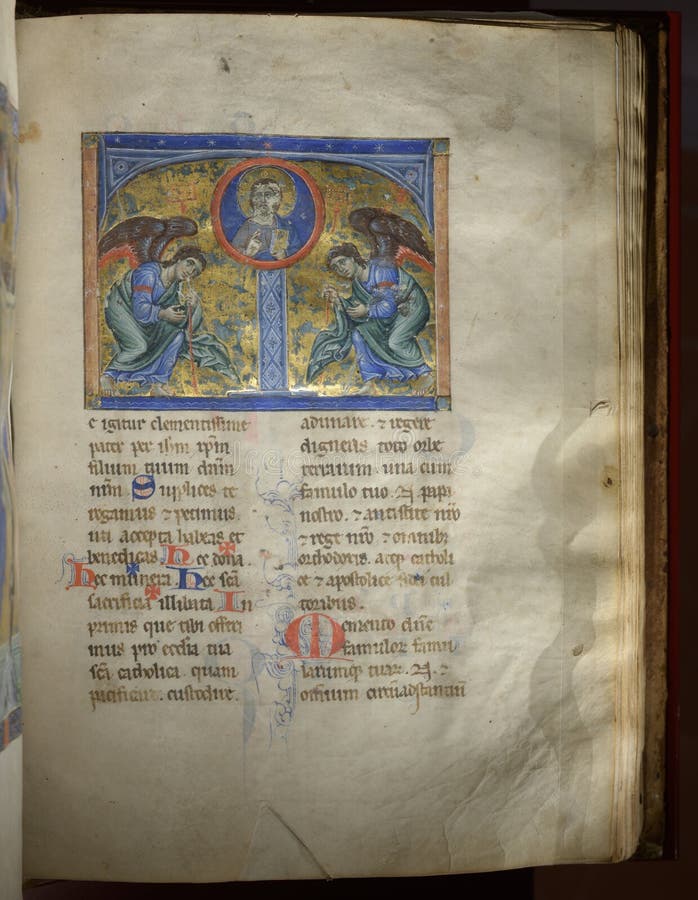 e igitur clementissime
pater per ihm xpm
filium tuum dnm
nrm Supplices te
rogamus ⁊ petimus.
uti accepta habeas et
benedicas. Hec dona.
Hec munera. Hec scā
sacrificia illibata In
primis que tibi offeri
mus pro ecclia tua
scā catholica. quam
pacificare. custodire.
adunare. ⁊ regere
digneris toto orbe
terrarum. una cum
famulo tuo. N. papa
nostro. ⁊ antistite nro
⁊ rege nro ⁊ omnibz
orthodoxis. atqz catholi
ce ⁊ apostolice fidei cul
toribus.
Memento dne
famulor famu
larumqz tuar. N. ⁊
omnium circūadstantiū